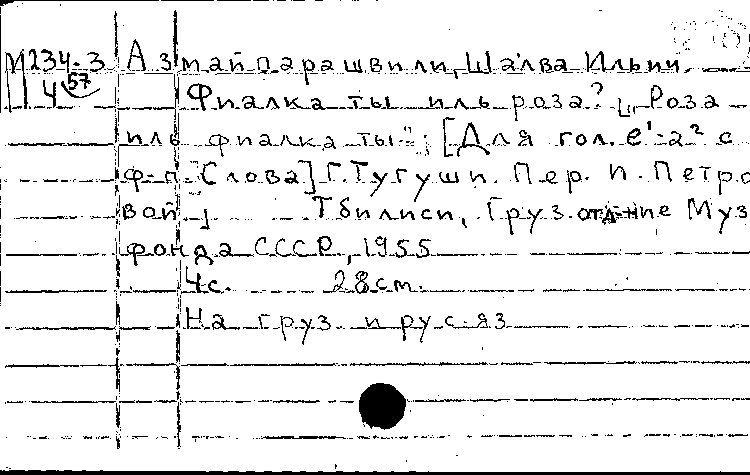 М234-3 Азмайпарашвили, Шалва Ильич.
4 57 Фиалка ты иль роза? ["Роза
иль фиалка ты"; [Для гол. e¹-a² с
ф-п. Слова] Г. Тугуши. Пер. И. Петро
вой] Тбилиси, Груз. отд-ние Муз
фонда СССР, 1955
4с. 28 см.
На груз. и рус. яз